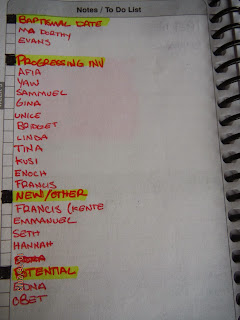 Notes / To Do List
BAPTISMAL DATE
MA DORTHY
EVANS
PROGRESSING INV
AFIA
YAW
SAMMUEL
GINA
UNICE
BRIDGET
LINDA
TINA
KUSI
ENOCH
FRANCIS
NEW/OTHER
FRANCIS (KENTE
EMMANUEL
SETH
HANNAH
POTENTIAL
EDNA
OBET